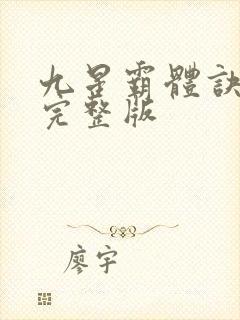 九星霸體訣
完整版
廖宇